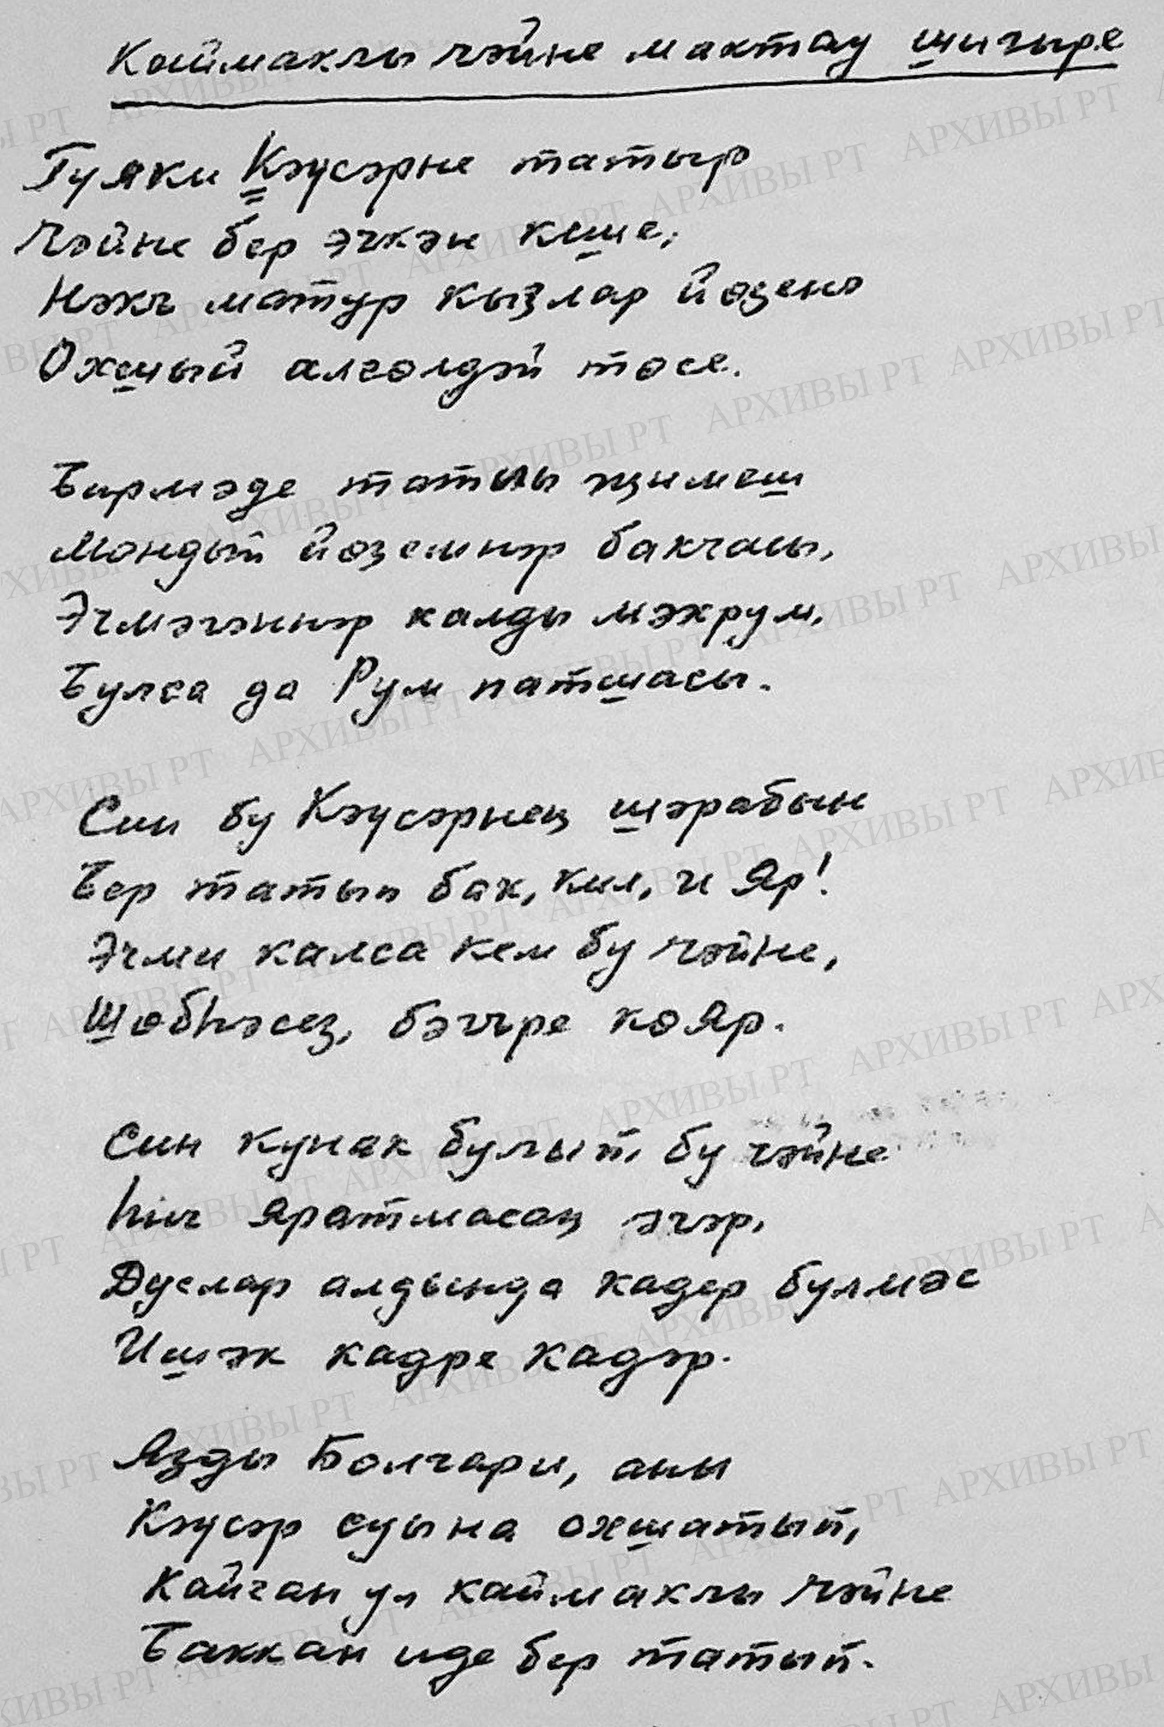 Каймаклы чәйне мактау шигыре
Гуяки Кәусәрне татыр
Чәйне бер эчкән кеше,
Нәкъ матур кызлар йөзенә
Охшый алгөлдәй төсе.
Бирмәде татлы җимеш
Мондый йөземнәр бакчасы,
Эчмәгәннәр калды мәхрум,
Булса да Рум патшасы.
Син бу Кәусәрнең шәрабын
Бер татып бак, кил, и Яр!
Эчми калса кем бу чәйне,
Шөбһәсез, бәгъре көяр.
Син кунак булып, бу чәйне
Һич яратмасаң эчәр,
Дуслар алдында кадер булмас
Ишәк кадре кадәр.
Язды Болгари, аны
Кәусәр суына охшатып,
Кайчан ул каймаклы чәйне
Баккан иде бер татып.
АРХИВЫ РТ